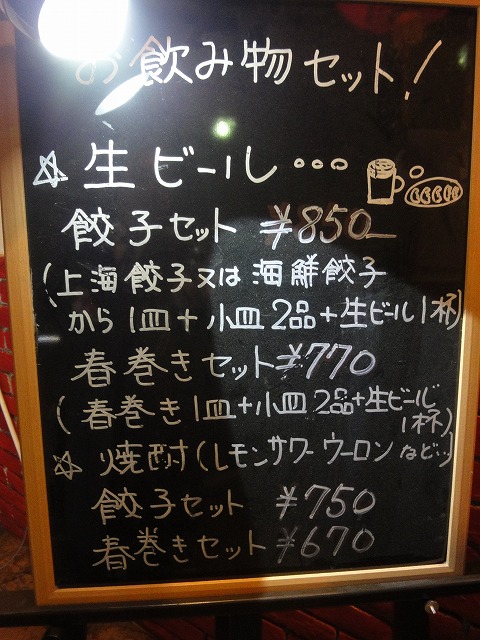 お飲み物セット!
☆生ビール・・・
餃子セット ¥850
(上海餃子又は海鮮餃子
から1皿+小皿2品+生ビール1杯)
春巻きセット¥770
(春巻き1皿+小皿2品+生ビール
1杯)
☆焼酎(レモンサワーウーロンなど…)
餃子セット ¥750
春巻きセット ¥670